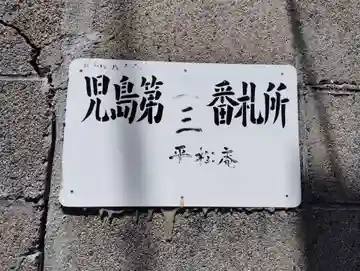 児島第三番札所
平松庵